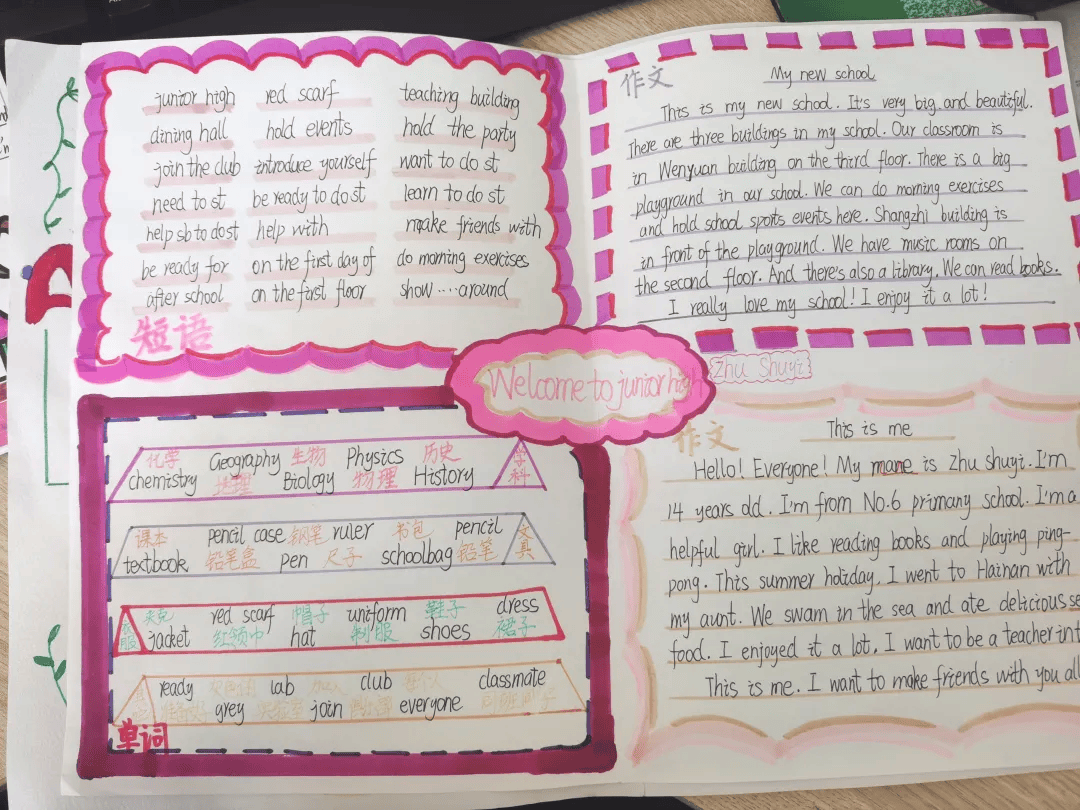 junior high red scarf teaching building
dining hall hold events hold the party
join the club introduce yourself want to do st
need to st be ready to do st learn to do st
help sb to do st help with make friends with
be ready for on the first day of do morning exercises
after school on the first floor show ····around
短语
作文
My new school
This is my new school. It's very big and beautiful.
There are three buildings in my school. Our classroom is
in Wenyuan building on the third floor. There is a big
playground in our school. We can do morning exercises
and hold school sports events here. Shangzhi building is
in front of the playground. We have music rooms on
the second floor. And there's also a library. We can read books.
I really love my school! I enjoy it a lot!
Welcome to junior high
Zhu Shuyi
化学 Geography 生物 Physics 历史
chemistry 地理 Biology 物理 History
学科
课本 pencil case 钢笔 ruler 书包 pencil
textbook 铅笔盒 pen 尺子 schoolbag 铅笔
文具
夹克 red scarf 帽子 uniform 鞋子 dress
服 jacket 红领巾 hat 制服 shoes 裙子
ready lab club 每个人 classmate
grey 实验室 join everyone
单词
作文
This is me
Hello! Everyone! My mane is Zhu Shuyi. I'm
14 years old. I'm from NO.6 primany school. I'm a
helpful girl. I like reading books and playing ping-
pong. This summer holiday, I went to Hainan with
my aunt. We swam in the sea and ate delicious se
food. I enjoyed it a lot. I want to be a teacher in t
This is me. I want to make friends with you all